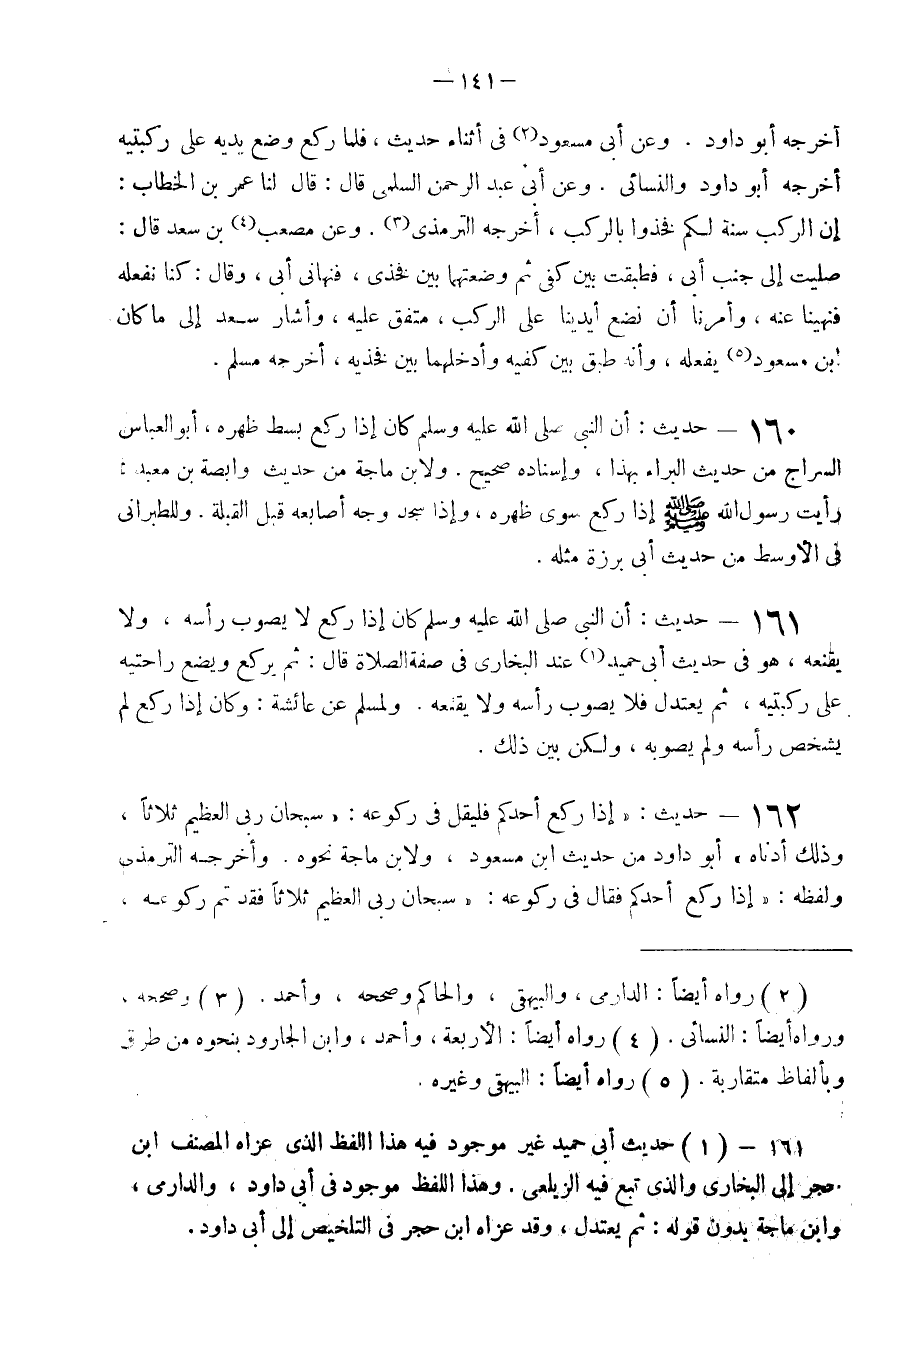 — ١٤١ —
أخرجه أبو داود . وعن أبى مسعود(٢) فى أثناء حديث ، فلما ركع وضع يديه على ركبتيه
أخرجه أبو داود والنسائى . وعن أبى عبد الرحمن السلمى قال : قال لنا عمر بن الخطاب :
إن الركب سنة لكم فخذوا بالركب ، أخرجه الترمذى(٣) . وعن مصعب(٤) بن سعد قال :
صليت إلى جنب أبى ، فطبقت بين كفى ثم وضعتهما بين فخذى ، فنهانى أبى ، وقال : كنا نفعله
فنهينا عنه ، وأمرنا أن نضع أيدينا على الركب ، متفق عليه ، وأشار سعد إلى ما كان
ابن مسعود(٥) يفعله ، وأنه طبق بين كفيه وأدخلهما بين فخذيه ، أخرجه مسلم .
١٦٠ — حديث : أن النبي صلى الله عليه وسلم كان إذا ركع بسط ظهره ، أبو العباس
السراج من حديث البراء بهذا ، وإسناده صحيح . ولابن ماجة من حديث وابصة بن معبد :
رأيت رسول الله ﷺ إذا ركع سوى ظهره ، وإذا سجد وجه أصابعه قبل القبلة . وللطبرانى
فى الأوسط من حديث أبى برزة مثله .
١٦١ — حديث : أن النبي صلى الله عليه وسلم كان إذا ركع لا يصوب رأسه ، ولا
يقنعه ، هو فى حديث أبى حميد(١) عند البخارى فى صفة الصلاة قال : ثم يركع ويضع راحتيه
على ركبتيه ، ثم يعتدل فلا يصوب رأسه ولا يقنعه . ولمسلم عن عائشة : وكان إذا ركع لم
يشخص رأسه ولم يصوبه ، ولكن بين ذلك .
١٦٢ — حديث : « إذا ركع أحدكم فليقل فى ركوعه : « سبحان ربى العظيم ثلاثاً ،
وذلك أدناه » أبو داود من حديث ابن مسعود ، ولابن ماجة نحوه . وأخرجه الترمذى
ولفظه : « إذا ركع أحدكم فقال فى ركوعه : « سبحان ربى العظيم ثلاثاً فقد تم ركوعه ،
( ٢ ) رواه أيضاً : الدارمى ، والبيهقى ، والحاكم وصححه ، وأحمد . ( ٣ ) وصححه ،
ورواه أيضاً : النسائى . ( ٤ ) رواه أيضاً : الأربعة ، وأحمد ، وابن الجارود بنحوه من طرق
وبألفاظ متقاربة . ( ٥ ) رواه أيضاً : البيهقى وغيره .
١٦١ — ( ١ ) حديث أبى حميد غير موجود فيه هذا اللفظ الذى عزاه المصنف ابن
حجر إلى البخارى والذى تبع فيه الزيلعى . وهذا اللفظ موجود فى أبى داود ، والدارمى ،
وابن ماجة بدون قوله : ثم يعتدل ، وقد عزاه ابن حجر فى التلخيص إلى أبى داود .